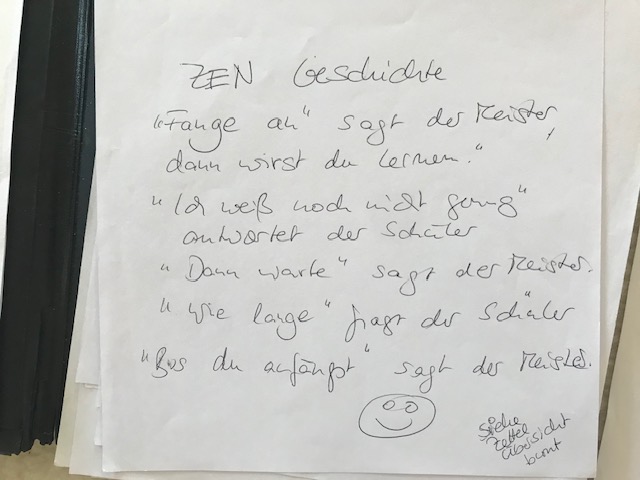 ZEN Geschichte
"Fange an" sagt der Meister,
dann wirst du lernen."
"Ich weiß noch nicht genug"
antwortet der Schüler
"Dann warte" sagt der Meister.
"Wie lange" fragt der Schüler
"Bis du anfängst" sagt der Meister.
siehe
Zettel
Übersicht
bunt